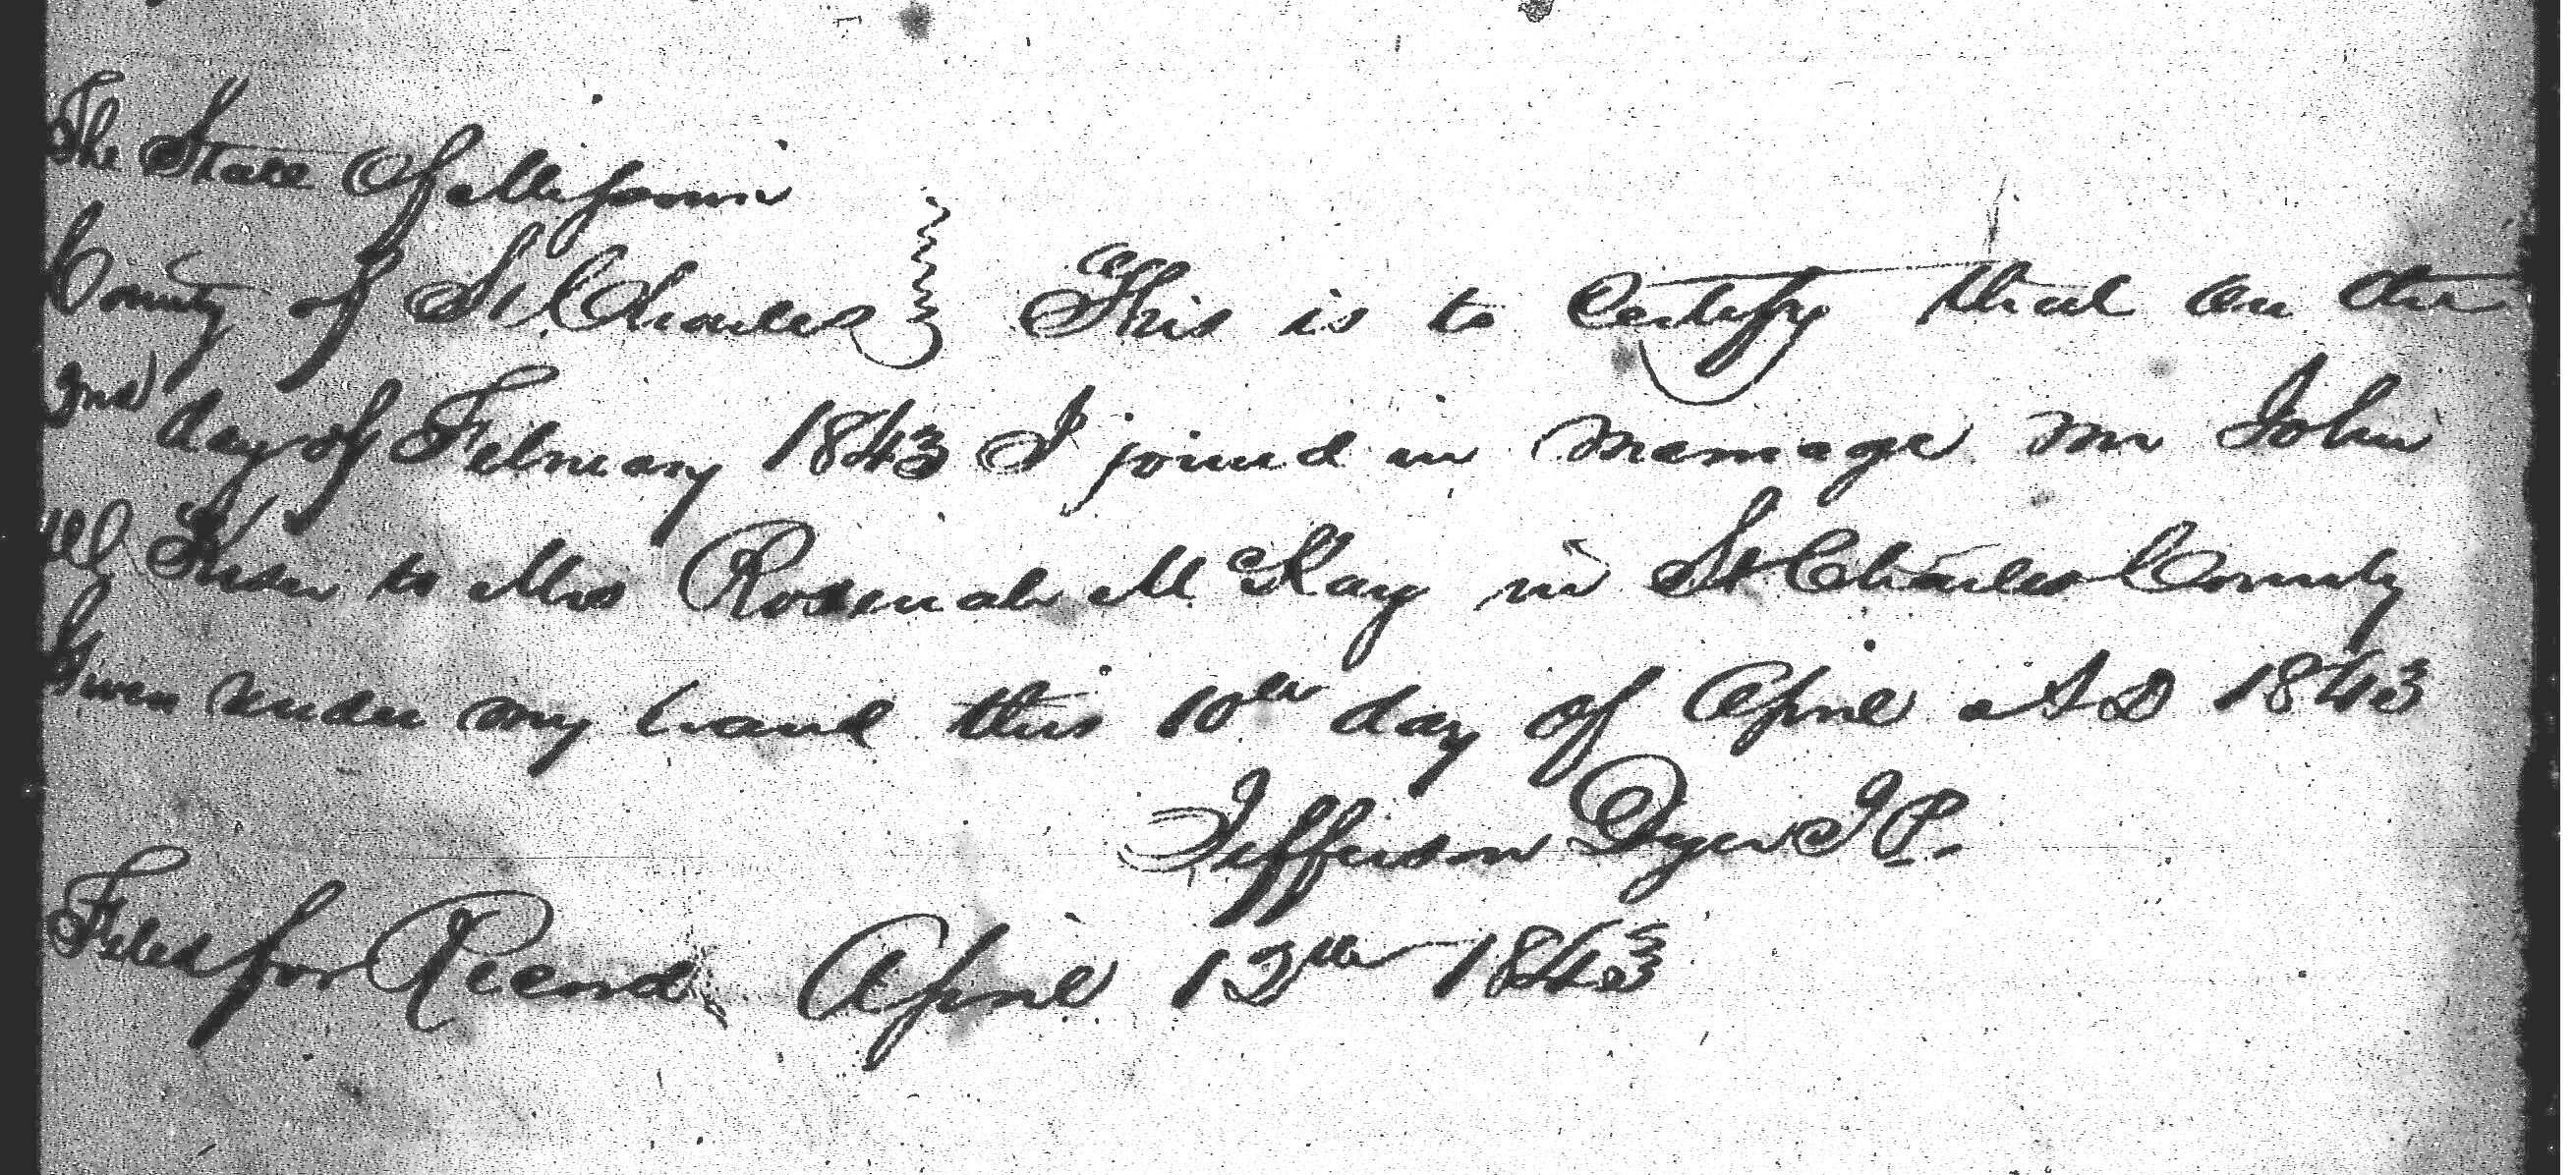 The State Of Missouri
County of St. Charles } This is to Certify that on the
2nd day of February 1843 I joined in Marriage Mr John
to Mrs Rosenah McKay in St Charles County
Given under my hand this 10th day of April A D 1843
Jefferson Dyer J P.
Filed for Record April 12th 1843